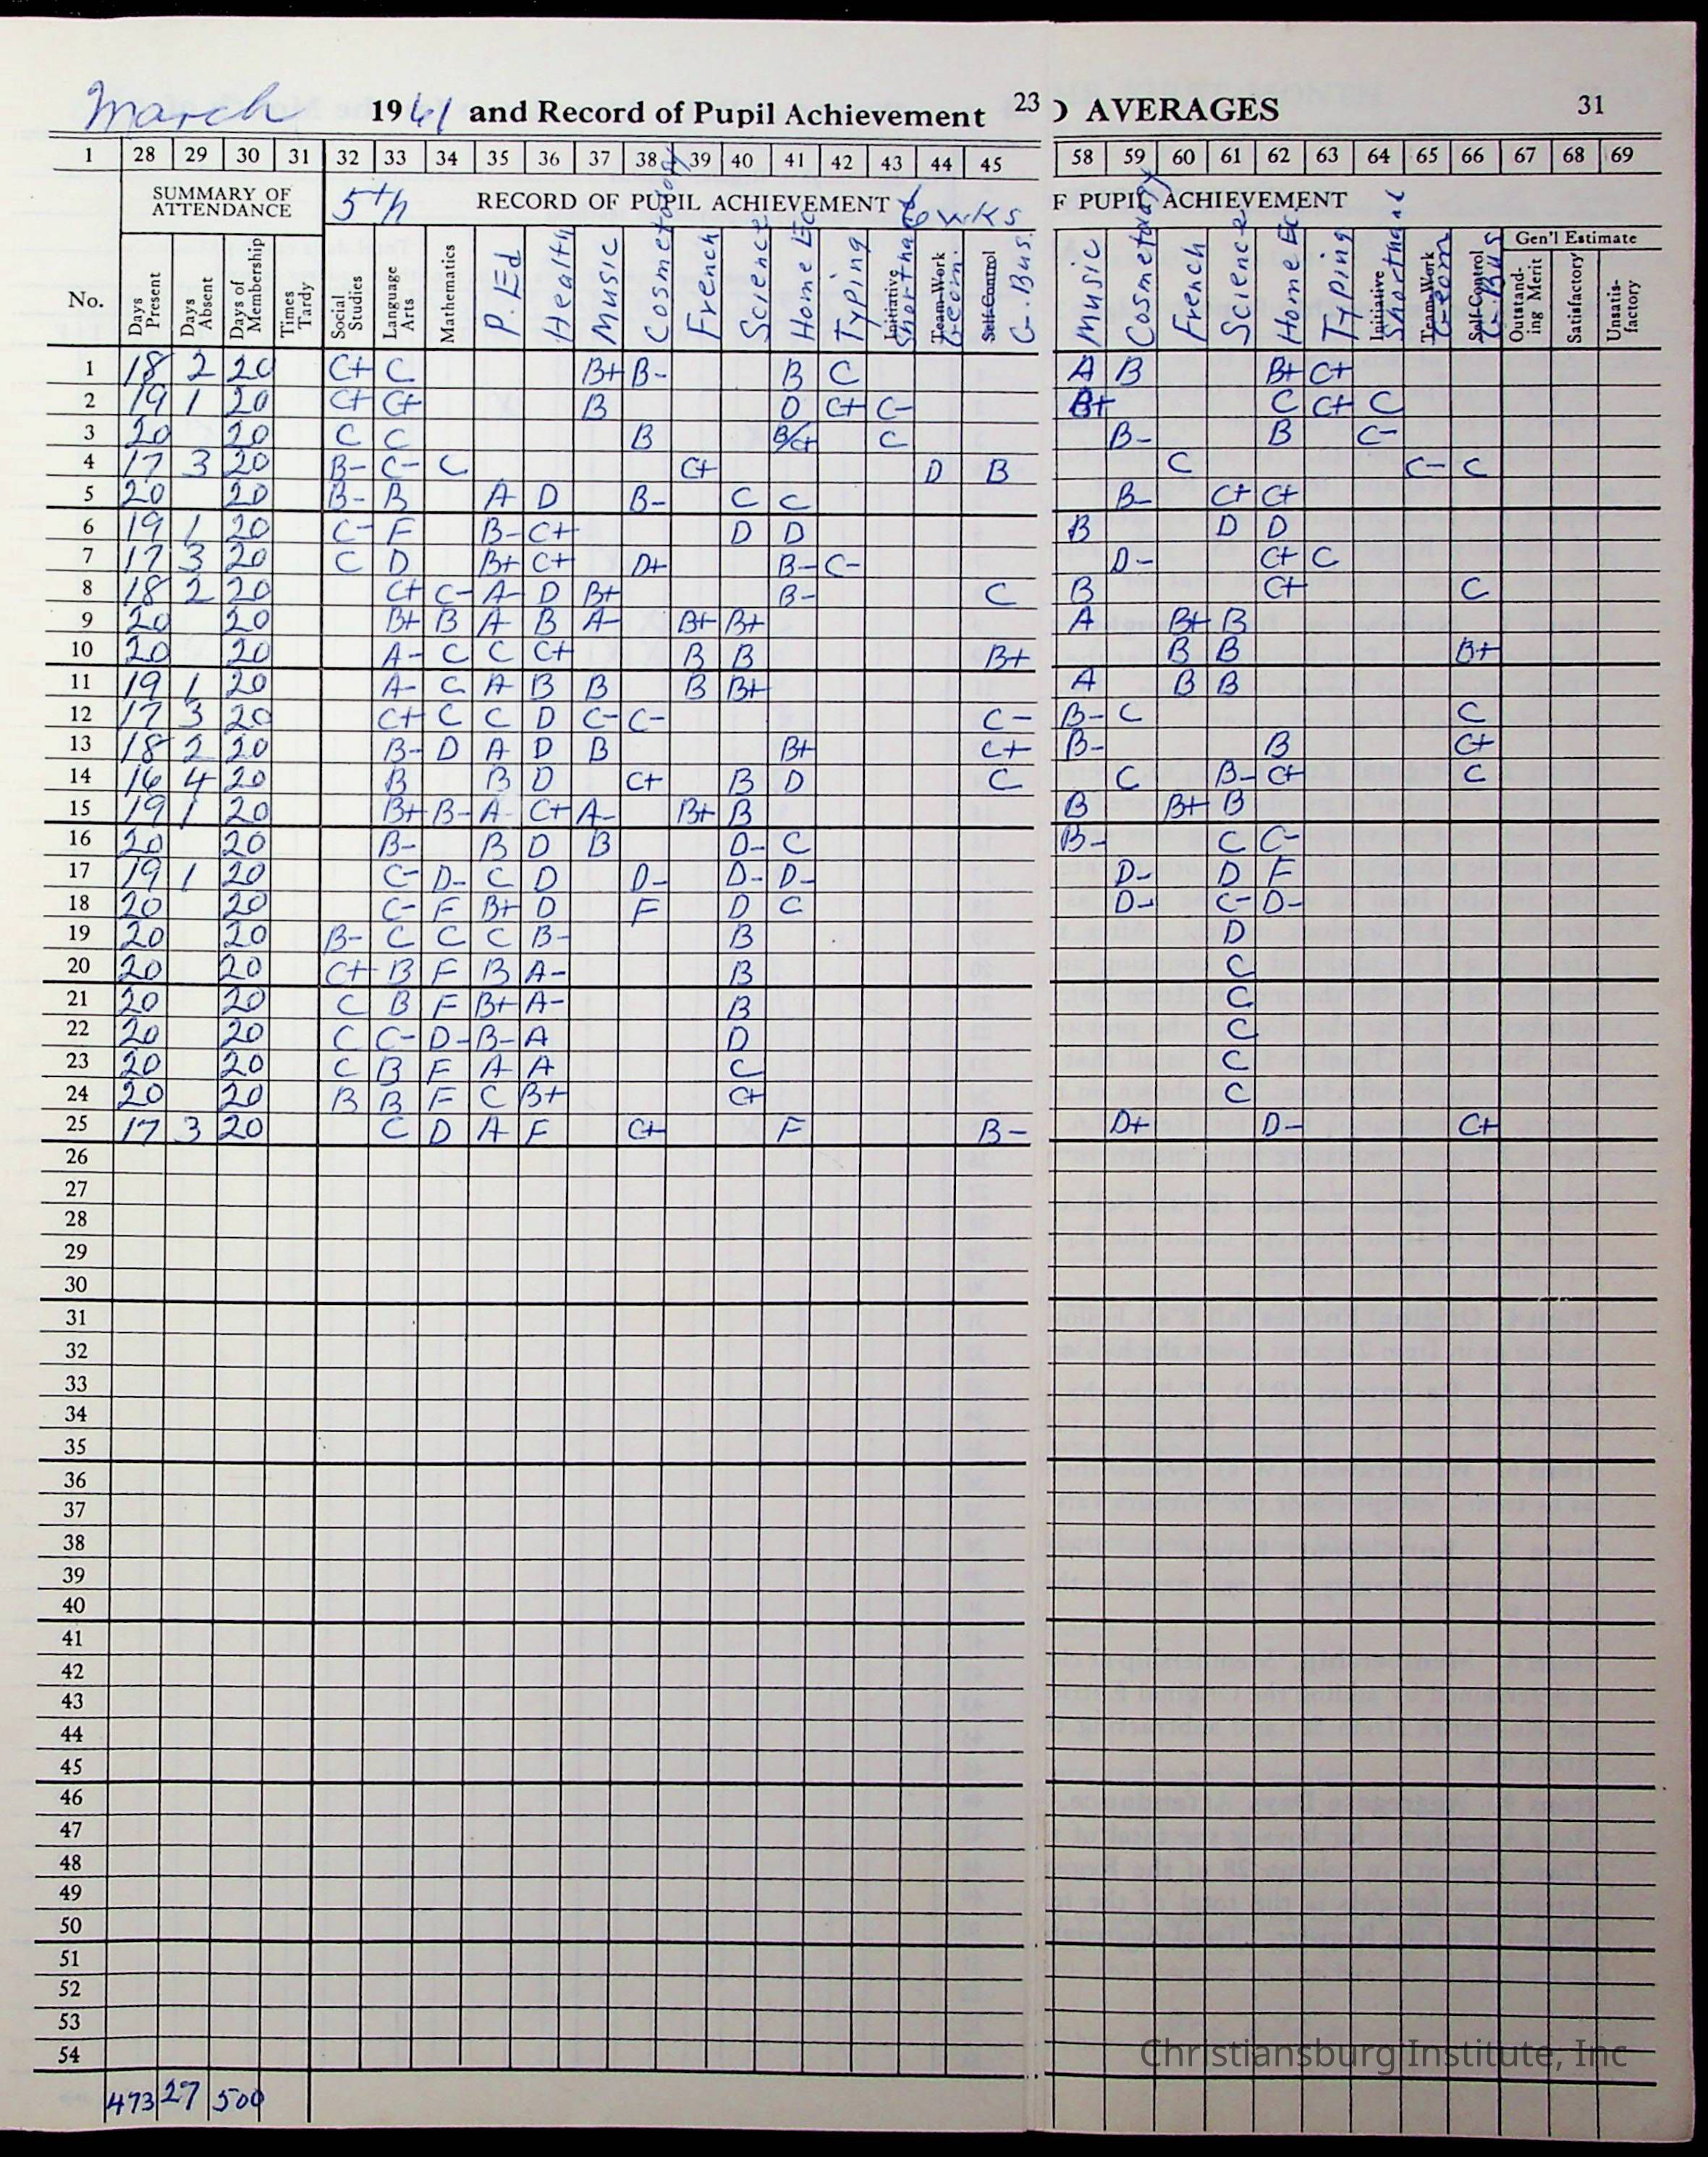 March 1961 and Record of Pupil Achievement 23 AVERAGES 31
1 28 29 30 31 32 33 34 35 36 37 38 39 40 41 42 43 44 45 58 59 60 61 62 63 64 65 66 67 68 69
SUMMARY OF ATTENDANCE 5th RECORD OF PUPIL ACHIEVEMENT 6 wks F PUPIL ACHIEVEMENT
Gen'l Estimate
No. Days Present Days Absent Days of Membership Times Tardy Social Studies Language Arts Mathematics P. Ed Health Music Cosmetology French Science Home Ec Typing Initiative Shorthand Team Work Geom. Self Control G. Bus. Music Cosmetology French Science Home Ec. Typing Initiative Shorthand Team Work Geom Self Control G. Bus Outstanding Merit Satisfactory Unsatisfactory
1 18 2 20 C+ C B+ B- B C A B B+ C+
2 19 1 20 C+ C+ B D C+ C- B+ C C+ C
3 20 20 C C B B/C+ C B- B C-
4 17 3 20 B- C- C C+ D B C C- C
5 20 20 B- B A D B- C C B- C+ C+
6 19 1 20 C- F B- C+ D D B D D
7 17 3 20 C D B+ C+ D+ B- C- D- C+ C
8 18 2 20 C+ C- A- D B+ B- C B C+ C
9 20 20 B+ B A B A- B+ B+ A B+ B
10 20 20 A- C C C+ B B B+ B B B+
11 19 1 20 A- C A B B B B+ A B B
12 17 3 20 C+ C C D C- C- C- B- C C
13 18 2 20 B- D A D B B+ C+ B- B C+
14 16 4 20 B B D C+ B D C C B- C+ C
15 19 1 20 B+ B- A C+ A- B+ B B B+ B
16 20 20 B- B D B D- C B- C C-
17 19 1 20 C- D- C D D- D- D- D- D F
18 20 20 C- F B+ D F D C D- C- D-
19 20 20 B- C C C B- B D
20 20 20 C+ B F B A- B C
21 20 20 C B F B+ A- B C
22 20 20 C C- D- B- A D C
23 20 20 C B F A A C C
24 20 20 B B F C B+ C+ C
25 17 3 20 C D A F C+ F B- D+ D- C+
26
27
28
29
30
31
32
33
34
35
36
37
38
39
40
41
42
43
44
45
46
47
48
49
50
51
52
53
54
473 27 500
Christiansburg Institute, Inc